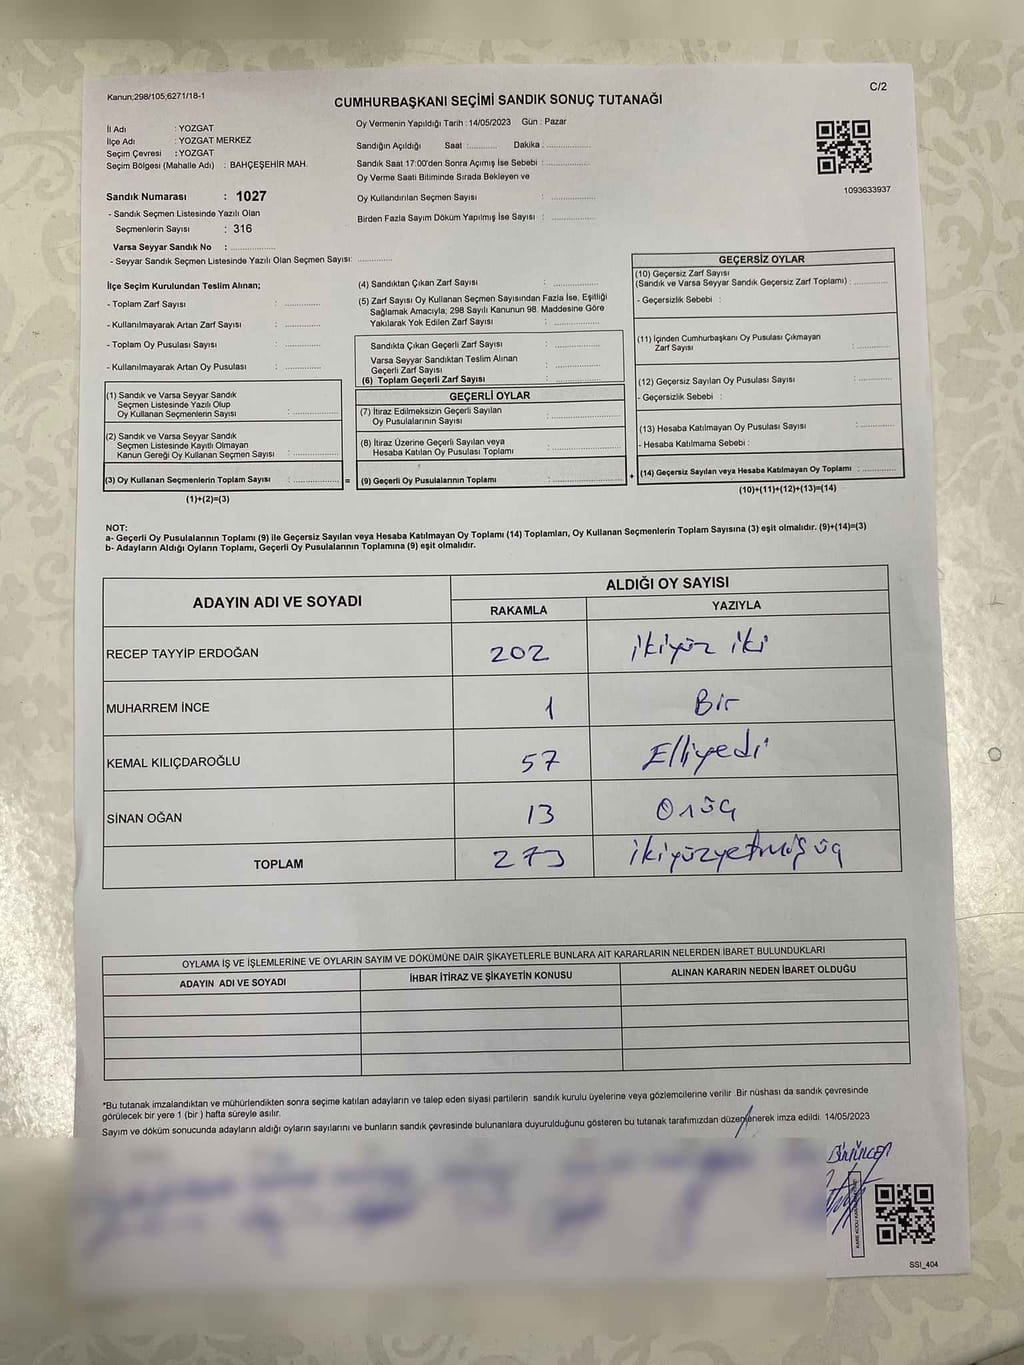 Kanun;298/105;6271/18-1
C/2
CUMHURBAŞKANI SEÇİMİ SANDIK SONUÇ TUTANAĞI
İl Adı : YOZGAT
İlçe Adı : YOZGAT MERKEZ
Seçim Çevresi : YOZGAT
Seçim Bölgesi (Mahalle Adı) : BAHÇEŞEHİR MAH.
Sandık Numarası : 1027
- Sandık Seçmen Listesinde Yazılı Olan
Seçmenlerin Sayısı : 316
Varsa Seyyar Sandık No : ..............
- Seyyar Sandık Seçmen Listesinde Yazılı Olan Seçmen Sayısı: ............
Oy Vermenin Yapıldığı Tarih : 14/05/2023 Gün : Pazar
Sandığın Açıldığı Saat :.......... Dakika : ...............
Sandık Saat 17:00'den Sonra Açımış İse Sebebi : ...............
Oy Verme Saati Bitiminde Sırada Bekleyen ve
Oy Kullandırılan Seçmen Sayısı : ...............
Birden Fazla Sayım Döküm Yapılmış İse Sayısı : ...............
1093633937
İlçe Seçim Kurulundan Teslim Alınan;
- Toplam Zarf Sayısı : ............
- Kullanılmayarak Artan Zarf Sayısı : ............
- Toplam Oy Pusulası Sayısı : ............
- Kullanılmayarak Artan Oy Pusulası : ............
(1) Sandık ve Varsa Seyyar Sandık
Seçmen Listesinde Yazılı Olup
Oy Kullanan Seçmenlerin Sayısı : ...............
(2) Sandık ve Varsa Seyyar Sandık
Seçmen Listesinde Kayıtlı Olmayan
Kanun Gereği Oy Kullanan Seçmen Sayısı : ...............
(3) Oy Kullanan Seçmenlerin Toplam Sayısı : ............... =
(1)+(2)=(3)
(4) Sandıktan Çıkan Zarf Sayısı : ...............
(5) Zarf Sayısı Oy Kullanan Seçmen Sayısından Fazla İse, Eşitliği
Sağlamak Amacıyla; 298 Sayılı Kanunun 98. Maddesine Göre
Yakılarak Yok Edilen Zarf Sayısı : ...............
Sandıkta Çıkan Geçerli Zarf Sayısı : ...............
Varsa Seyyar Sandıktan Teslim Alınan
Geçerli Zarf Sayısı : ...............
(6) Toplam Geçerli Zarf Sayısı : ...............
GEÇERLİ OYLAR
(7) İtiraz Edilmeksizin Geçerli Sayılan
Oy Pusulalarının Sayısı : ...............
(8) İtiraz Üzerine Geçerli Sayılan veya
Hesaba Katılan Oy Pusulası Toplamı : ...............
(9) Geçerli Oy Pusulalarının Toplamı : ............... +
GEÇERSİZ OYLAR
(10) Geçersiz Zarf Sayısı
(Sandık ve Varsa Seyyar Sandık Geçersiz Zarf Toplamı) : ............
- Geçersizlik Sebebi :
(11) İçinden Cumhurbaşkanı Oy Pusulası Çıkmayan
Zarf Sayısı : ............
(12) Geçersiz Sayılan Oy Pusulası Sayısı : ............
- Geçersizlik Sebebi :
(13) Hesaba Katılmayan Oy Pusulası Sayısı : ............
- Hesaba Katılmama Sebebi :
(14) Geçersiz Sayılan veya Hesaba Katılmayan Oy Toplamı : ............
(10)+(11)+(12)+(13)=(14)
NOT:
a- Geçerli Oy Pusulalarının Toplamı (9) ile Geçersiz Sayılan veya Hesaba Katılmayan Oy Toplamı (14) Toplamları, Oy Kullanan Seçmenlerin Toplam Sayısına (3) eşit olmalıdır. (9)+(14)=(3)
b- Adayların Aldığı Oyların Toplamı, Geçerli Oy Pusulalarının Toplamına (9) eşit olmalıdır.
ADAYIN ADI VE SOYADI ALDIĞI OY SAYISI
RAKAMLA YAZIYLA
RECEP TAYYİP ERDOĞAN 202 ikiyüz iki
MUHARREM İNCE 1 Bir
KEMAL KILIÇDAROĞLU 57 Elliyedi
SİNAN OĞAN 13 Onüç
TOPLAM 273 ikiyüzyetmişüç
OYLAMA İŞ VE İŞLEMLERİNE VE OYLARIN SAYIM VE DÖKÜMÜNE DAİR ŞİKAYETLERLE BUNLARA AİT KARARLARIN NELERDEN İBARET BULUNDUKLARI
ADAYIN ADI VE SOYADI İHBAR İTİRAZ VE ŞİKAYETİN KONUSU ALINAN KARARIN NEDEN İBARET OLDUĞU
*Bu tutanak imzalandıktan ve mühürlendikten sonra seçime katılan adayların ve talep eden siyasi partilerin sandık kurulu üyelerine veya gözlemcilerine verilir Bir nüshası da sandık çevresinde
görülecek bir yere 1 (bir ) hafta süreyle asılır.
Sayım ve döküm sonucunda adayların aldığı oyların sayılarını ve bunların sandık çevresinde bulunanlara duyurulduğunu gösteren bu tutanak tarafımızdan düzenlenerek imza edildi. 14/05/2023
SSI_404